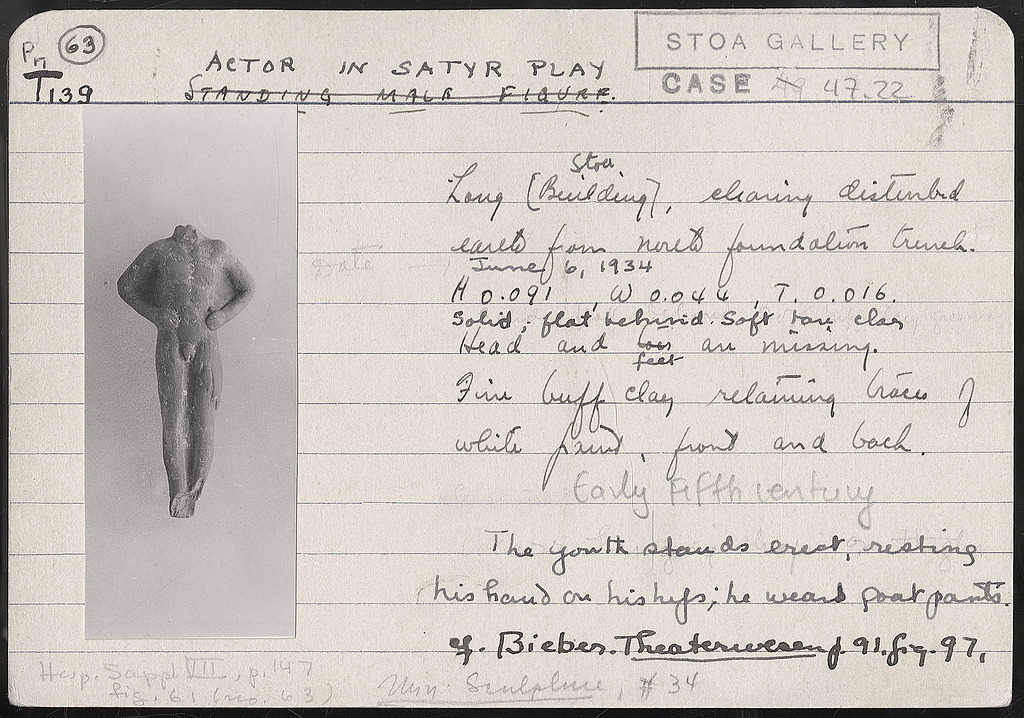 Pn 63
T139
ACTOR IN SATYR PLAY
STANDING MALE FIGURE.
STOA GALLERY
CASE 47.22
Stoa
Long [Building], clearing disturbed
earth from north foundation trench.
Date
June 6, 1934
H 0.091, W 0.044, T. 0.016.
Solid; flat behind. Soft tan clay
Head and feet are missing.
Fine buff clay retaining traces of
white paint, front and back.
Early Fifth century
The youth stands erect, resting
his hand on his hips; he wears goat pants.
cf. Bieber. Theaterwesen p. 91. fig. 97,
Hesp. Suppl. VII, p. 147
fig. 61 (no. 63)
Min. Sculpture, # 34